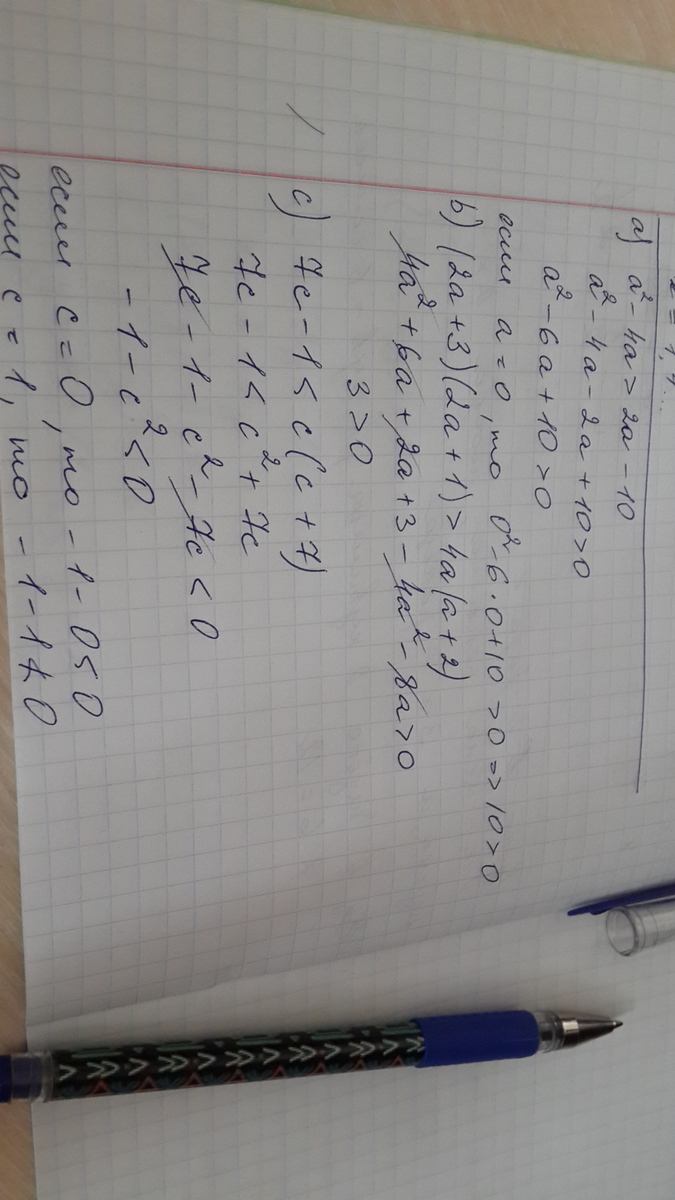 a) a² - 4a > 2a - 10
a² - 4a - 2a + 10 > 0
a² - 6a + 10 > 0
если a = 0, то 0² - 6·0 + 10 > 0 => 10 > 0
b) (2a + 3)(2a + 1) > 4a(a + 2)
4a² + 6a + 2a + 3 - 4a² - 8a > 0
3 > 0
c) 7c - 1 < c(c + 7)
7c - 1 < c² + 7c
7c - 1 - c² - 7c < 0
- 1 - c² < 0
если c = 0, то - 1 - 0 < 0
если c = 1, то - 1 - 1 < 0